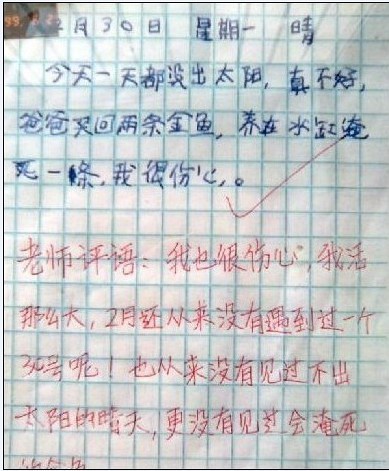 2月30日 星期一 晴
今天一天都没出太阳,真不好,
爸爸买回两条金鱼,养在水缸淹
死一條,我很伤心,。
老师评语:我也很伤心,我活
那么大,2月还从来没有遇到过一个
30号呢!也从来没有见过不出
太阳的晴天,更没有见过会淹死